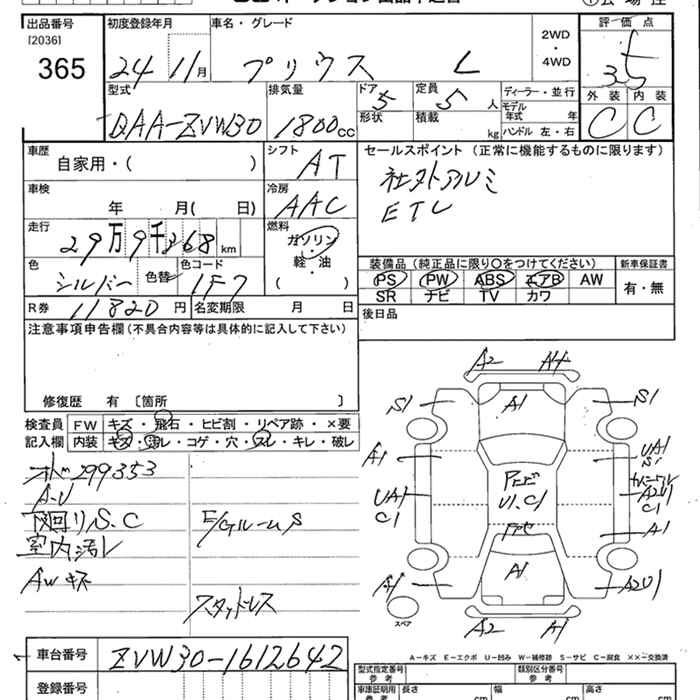 出品番号 初度登録年月 車名・グレード 評価点
[2036]
365 24 11月 プリウス L 2WD ・ 4WD 3.5
型式 排気量 ドア 定員 ディーラー・並行 外装 内装
DAA-ZVW30 1800cc 5 5人 モデル年式 年 C C
形状 積載 kg ハンドル 左・右
車歴 シフト セールスポイント (正常に機能するものに限ります)
自家用・( ) AT 社外アルミ
車検 冷房 ETC
年 月( 日) AAC
走行 燃料
29万9千368km ガソリン・軽・油
( )
装備品 (純正品に限り○をつけてください) 新車保証書
色 色替 色コード PS PW ABS エアB AW 有・無
シルバー 1F7 SR ナビ TV カワ
R券 11820円 名変期限 月 日 後日品
注意事項申告欄 (不具合内容等は具体的に記入して下さい)
修復歴 有 〔箇所 〕
検査員 FW キズ・飛石・ヒビ割・リペア跡・×要
記入欄 内装 キズ・汚レ・コゲ・穴・スレ・キレ・破レ
299353
A・U
下回リS.C
室内汚レ
E/GルームS
AWキズ
スタッドレス
A2 A4
S1 A1 S1
A1 UA1
S
UA1 U1.C1 A2U1
C1 C1
A1
A1 A1 A2U1
スペア A2 A1
A−キズ E−エクボ U−凹み W−補修跡 S−サビ C−腐食 ××−交換済
車台番号 ZVW30-1612642
型式指定番号 参考 類別区分番号 参考
登録番号 車庫証明用 参考 長さ cm 幅 cm 高さ cm